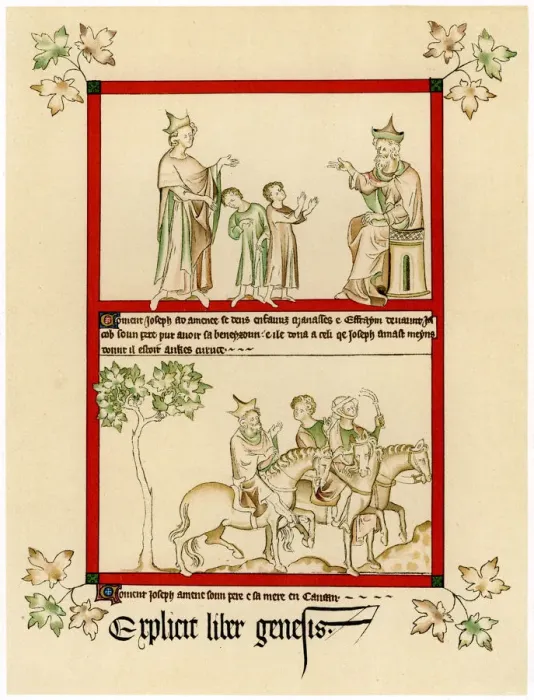 Coment Joseph ad amenee se deus enfaunz Manasses e Effraym devaunt Ja
cob soun pere pur avoir sa beneysoun : e ile dona a celi qe Joseph amast meyns
dount il estoit aukes curuce
Coment Joseph amene soun pere e sa mere en Canaan
Explicit liber genesis.